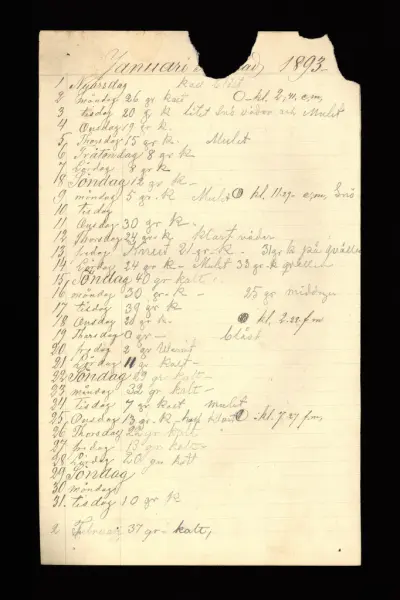 Januari 1893
1 Nyårsdag
2 måndag 26 gr kallt O- kl. 2, 41, e,m,
3 tisdag 20 g k litet Snö väder och Mulet
4 Onsdag 19 gr. k.
5 Thorsdag 15 gr. K. Mulet
6 8 gr k
7 Lördag 8 gr k
8 Söndag 12 gr K -
9 måndag 5 gr. K - Mulet kl. 11.27 - e,m, Snö
10 tisdag
11 Onsdag 30 gr k.
12 Thorsdag 24 gr k väder
13 fredag Knut 21 gr. k. 31 gr k på qvällen
14 Lördag 24 gr K - Mulet 33 gr. k qvällen
15 Söndag 40 gr kallt.
16 måndag 30 gr K - 25 gr middagen
17 tisdag 39 gr k
18 Onsdag gr k. kl. 2.28. f.m
19 Thorsdag 0 gr - blåst
20 fredag 2 gr
21 Lördag 11 gr Kallt -
22 Söndag 29 gr kallt -
23 måndag 32 gr kallt -
24 tisdag 7 gr kallt mulet
25 Onsdag 13 gr - K kl 7.27 f.m,
26 Thorsdag 22 gr kallt
27 fredag 13 gr kallt
28 Lördag 20 gr
29 Söndag
30 måndag
31. tisdag 10 gr K
2 Februari 37 gr - kallt,